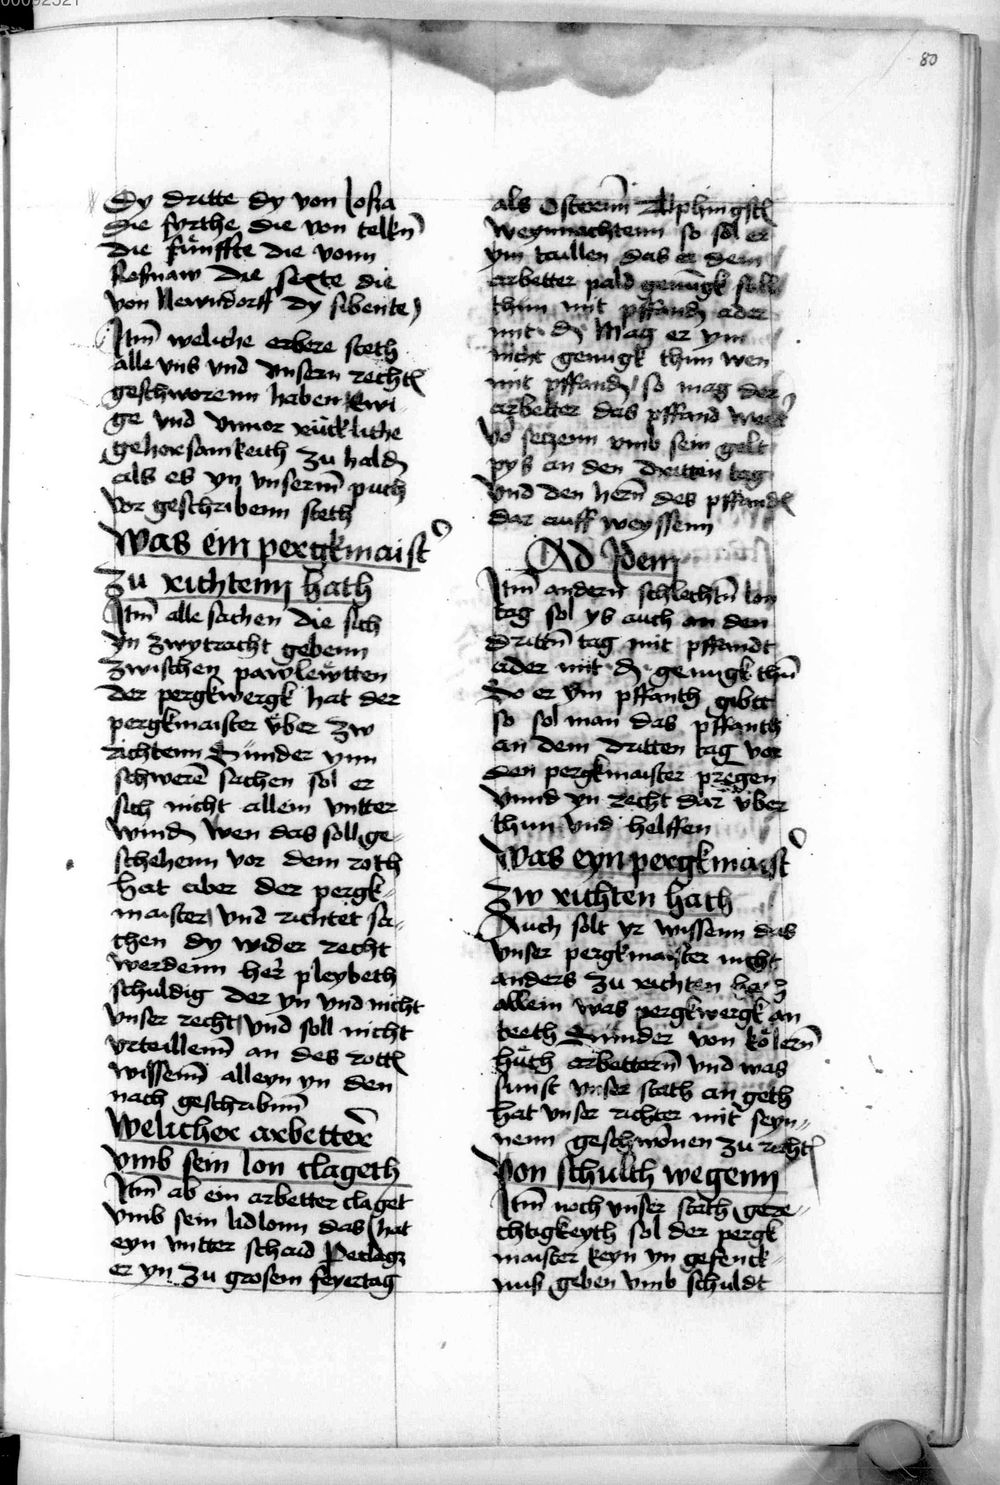 80
Dy dritte dy von losza
die fyrthe die von telkn̄
die fünffte die vonn
Rosnaw die sexte die
von Newndorff dy sibente
Itm̄ welliche erbere steth
alle vns vnd vnsern rechtn̄
geschworenn haben Ewi-
ge vnd vnuor rückliche
gehorsamkeith zu haldn̄
als es yn vnserm̄ puch
vor geschribenn steth
Was ein pergkmaist'
zu richtenn hath
Itm̄ alle sachen die sich
yn zwytracht gebenn
zwischen pawlewtten
der pergkwergk hat der
pergkmaister vber zw
richtenn Sunder ynn
schwerē sachen sol er
sich nicht allein vntter
windn̄ Wen das soll ge-
schehenn vor dem roth
hat aber der pergk-
maister vnd richtet sa-
chen dy wider recht
werdenn her pleybeth
schuldig der yn vnd nicht
vnser recht vnd soll nicht
vrteillenn̄ an des rottn̄
wissenn̄ alleyn yn den
nach geschribnn̄
Welicher arbetter
vmb sein lon clageth
Itm̄ ab ein arbetter claget
vmb sein lidlonn das hat
eyn vntter schaid
er yn zu grosem feyertag
als Osterenn̄ Phingstn̄
Weynnachtenn so sol er
ym taillen das er dem
arbetter pald genūgk soll
thun mit pffandn̄ ader
mit d̄ Mag er ym
nicht genugk thun wen
mit pffandn̄ so mag der
arbetter das pffand
vō setzenn vmb sein gelt
pys an den dritten tag
vnd den hern̄ des pffandn̄
dar auff weyssenn
Ad Idem
Itm̄ andern schlechtn̄ lon
tag sol ys auch an den
drittn̄ tag mit pffandt
ader mit d̄ genugk thū
Do er ym pffanth gibtt
so sol man das pffanth
an dem dritten tag vor
den pergkmaister pregen
vnnd yn recht dar vber
thun vnd helffen
Was eyn pergkmaist'
zw richten hath
Auch solt yr wissenn das
vnser pergkmaister nicht
anders zu richten hath
allein was pergkwergk an
teeth Sunder von kölern̄
hüth arbettern̄ vnd was
sunst vnser stath an geth
hat vnser richter mit seyn-
nenn geschwonen zu richtn̄
Von schulth wegenn
Itm̄ noch vnser stath gere-
chtigkeyth sol der pergk
maister keyn yn gefenck-
nuß geben vmb schuldt